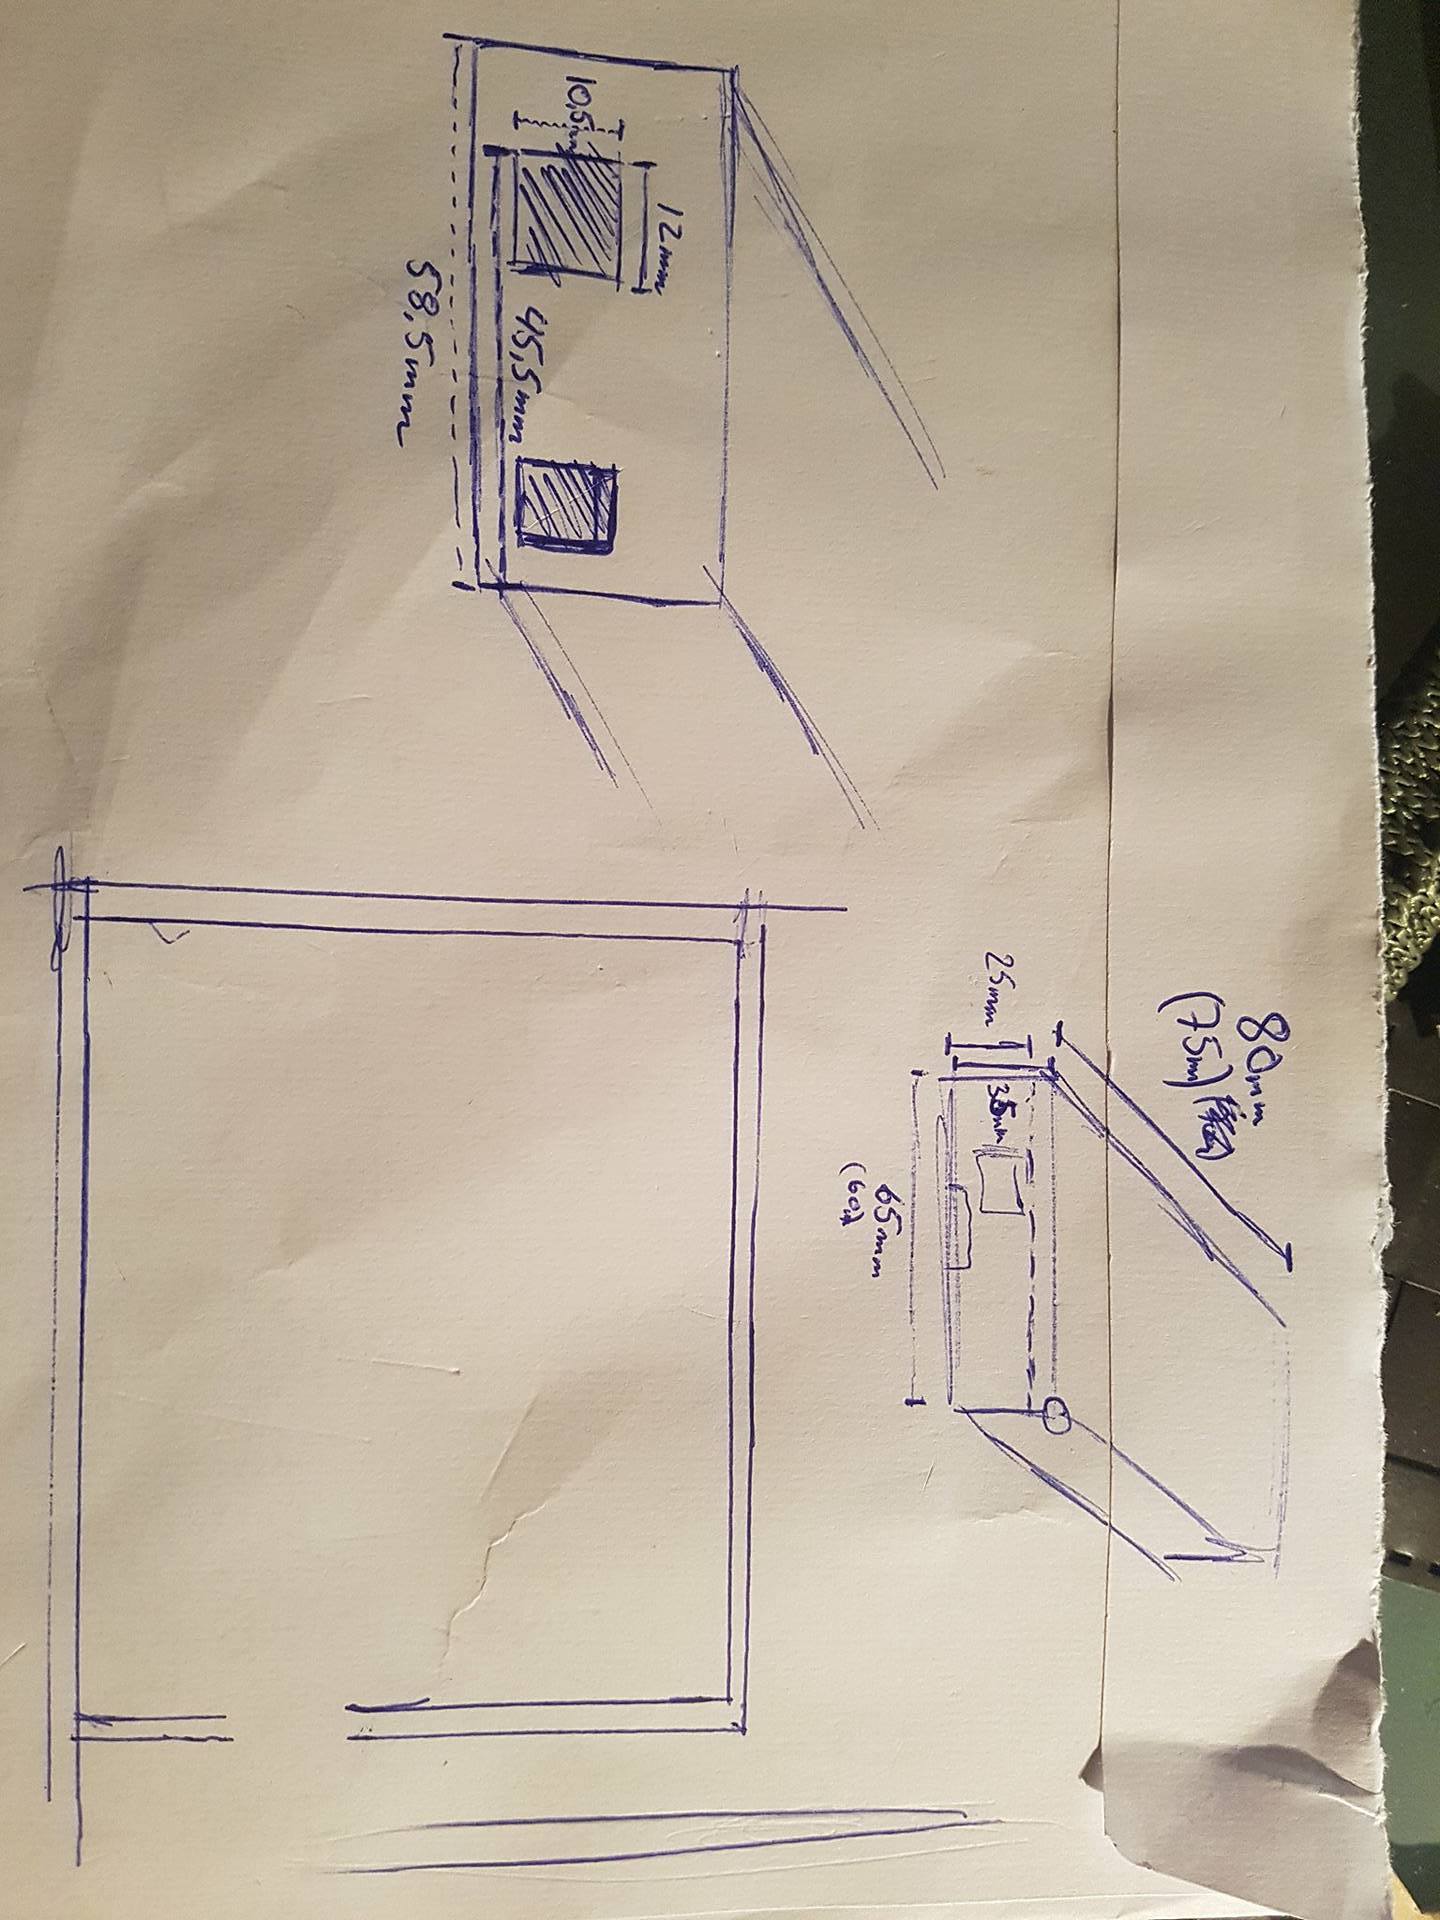 10,5mm
12mm
45,5mm
58,5mm
80mm
(75m)
25mm
35mm
65mm